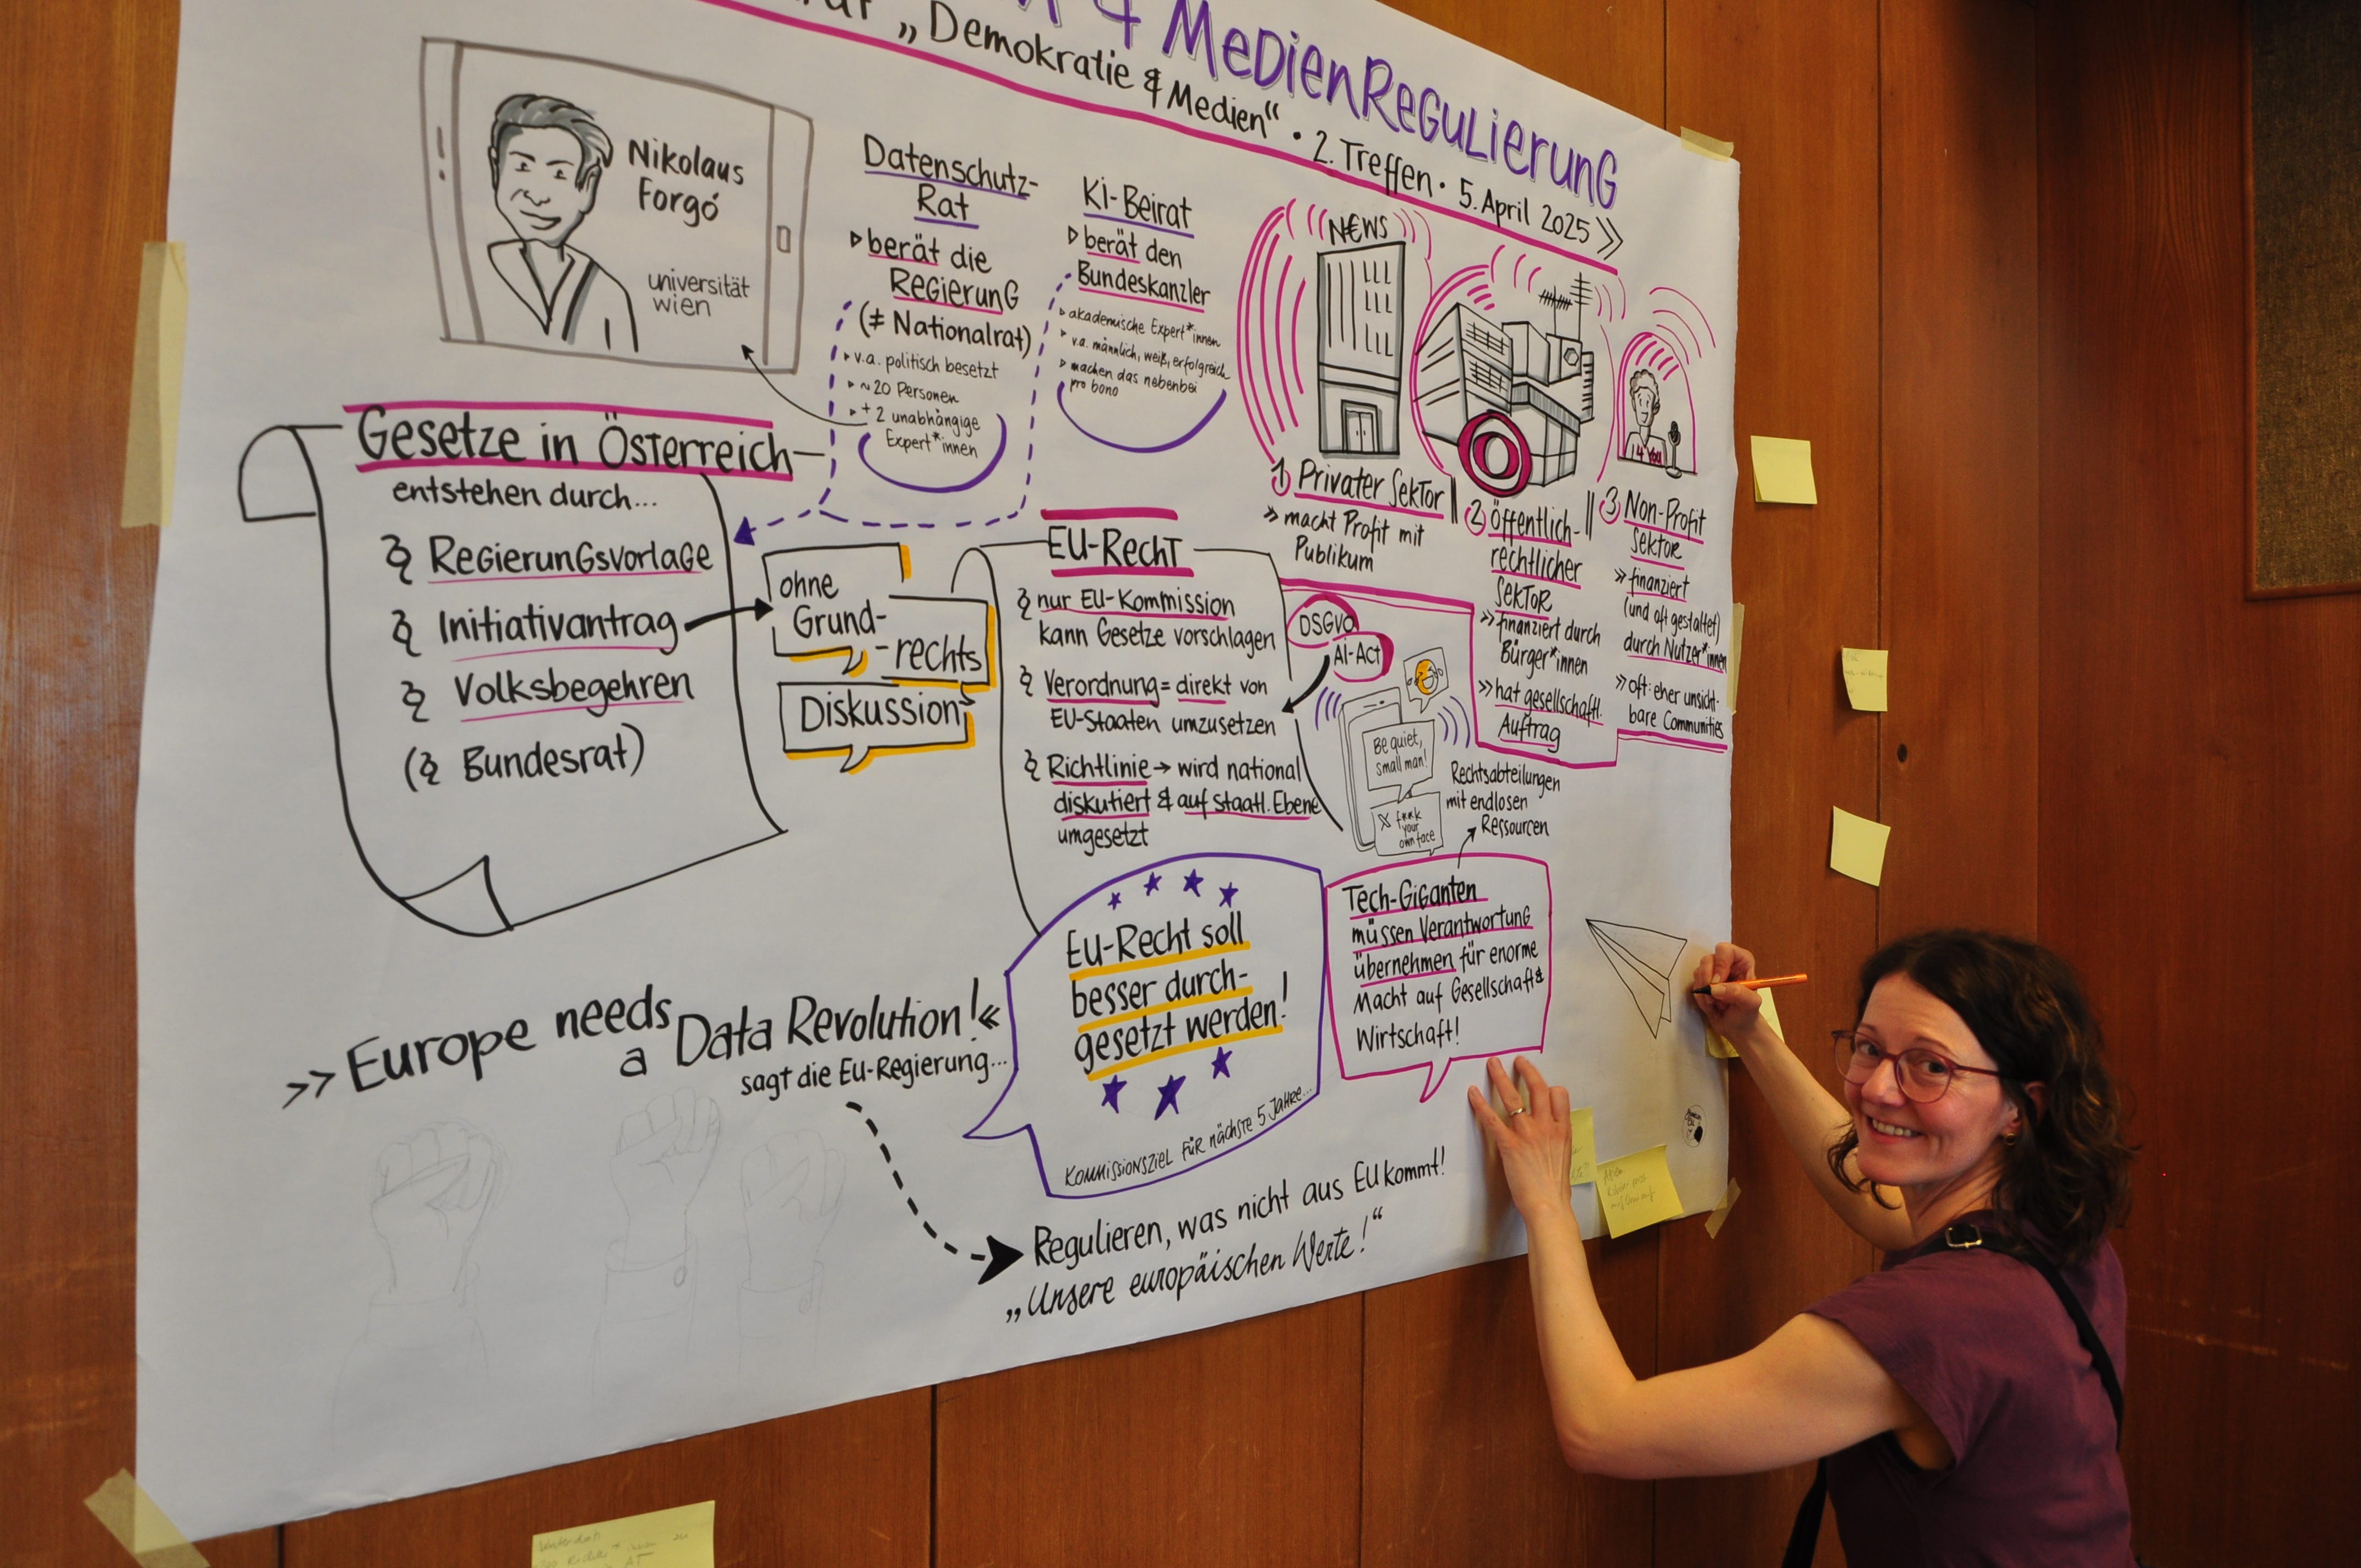 & MedienRegulierung
„Demokratie & Medien“ • 2. Treffen • 5. April 2025 »
Nikolaus
Forgó
universität
wien
Datenschutz-
Rat
▹ berät die
Regierung
(≠ Nationalrat)
▸ v.a. politisch besetzt
▸ ~20 Personen
▸ + 2 unabhängige
Expert*innen
KI-Beirat
▹ berät den
Bundeskanzler
▹ akademische Expert*innen
▹ v.a. männlich, weiß, erfolgreich
▹ machen das nebenbei
pro bono
N€WS
1) Privater Sektor
» macht Profit mit
Publikum
2) Öffentlich-
rechtlicher
Sektor
» finanziert durch
Bürger*innen
» hat gesellschaftl.
Auftrag
4 You
3) Non-Profit
Sektor
» finanziert
(und oft gestaltet)
durch Nutzer*innen
» oft: eher unsicht-
bare Communities
Gesetze in Österreich
entstehen durch...
§ Regierungsvorlage
§ Initiativantrag
§ Volksbegehren
(§ Bundesrat)
ohne
Grund-
-rechts
Diskussion
EU-Recht
§ nur EU-Kommission
kann Gesetze vorschlagen
§ Verordnung = direkt von
EU-Staaten umzusetzen
§ Richtlinie → wird national
diskutiert & auf staatl. Ebene
umgesetzt
DSGVO
AI-Act
Be quiet,
small man!
X f**k
your
own face
Rechtsabteilungen
mit endlosen
Ressourcen
Tech-Giganten
müssen Verantwortung
übernehmen für enorme
Macht auf Gesellschaft &
Wirtschaft!
EU-Recht soll
besser durch-
gesetzt werden!
Kommissionsziel für nächste 5 Jahre...
» Europe needs
a Data Revolution! «
sagt die EU-Regierung...
Regulieren, was nicht aus EU kommt!
„Unsere europäischen Werte!“